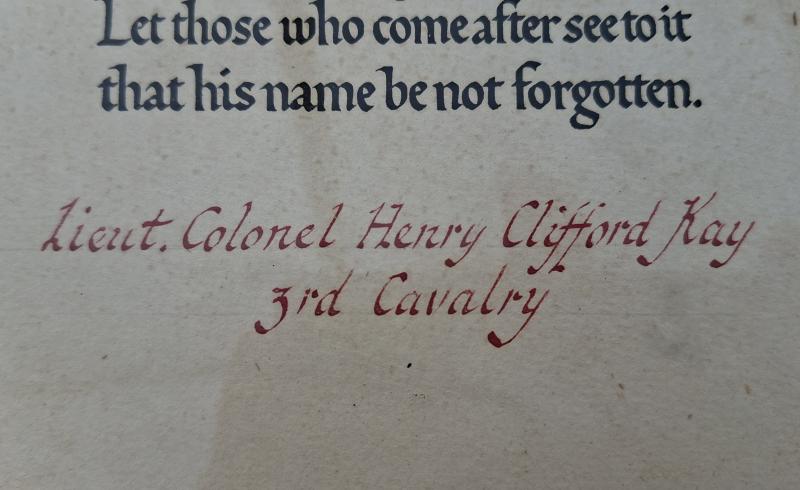 Let those who come after see to it
that his name be not forgotten.
Lieut. Colonel Henry Clifford Kay
3rd Cavalry